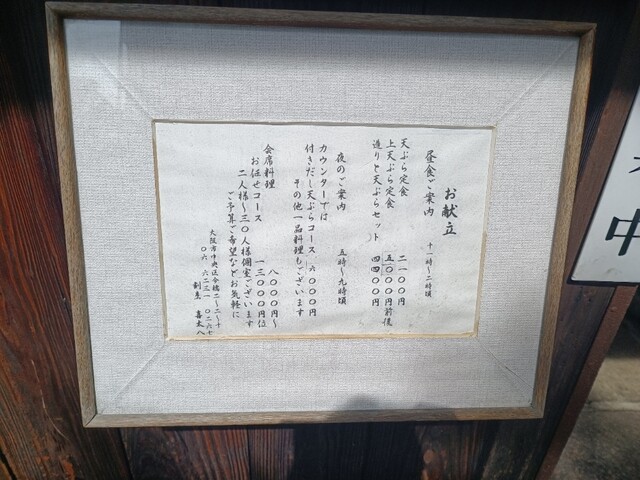 お献立
昼食ご案内 十一時〜二時頃
天ぷら定食 二一〇〇円
上天ぷら定食 五〇〇〇円前後
造りと天ぷらセット 四四〇〇円
夜のご案内 五時〜九時頃
カウンターでは
付きだし天ぷらコース 六〇〇〇円
その他一品料理もございます
会席料理 八〇〇〇円〜
お任せコース 一三〇〇〇円位
二人様〜三〇人様個室ございます
ご予算ご希望などお気軽に
大阪市中央区今橋二-二-十
〇六 六二三一 〇二六七
割烹 喜太八
中